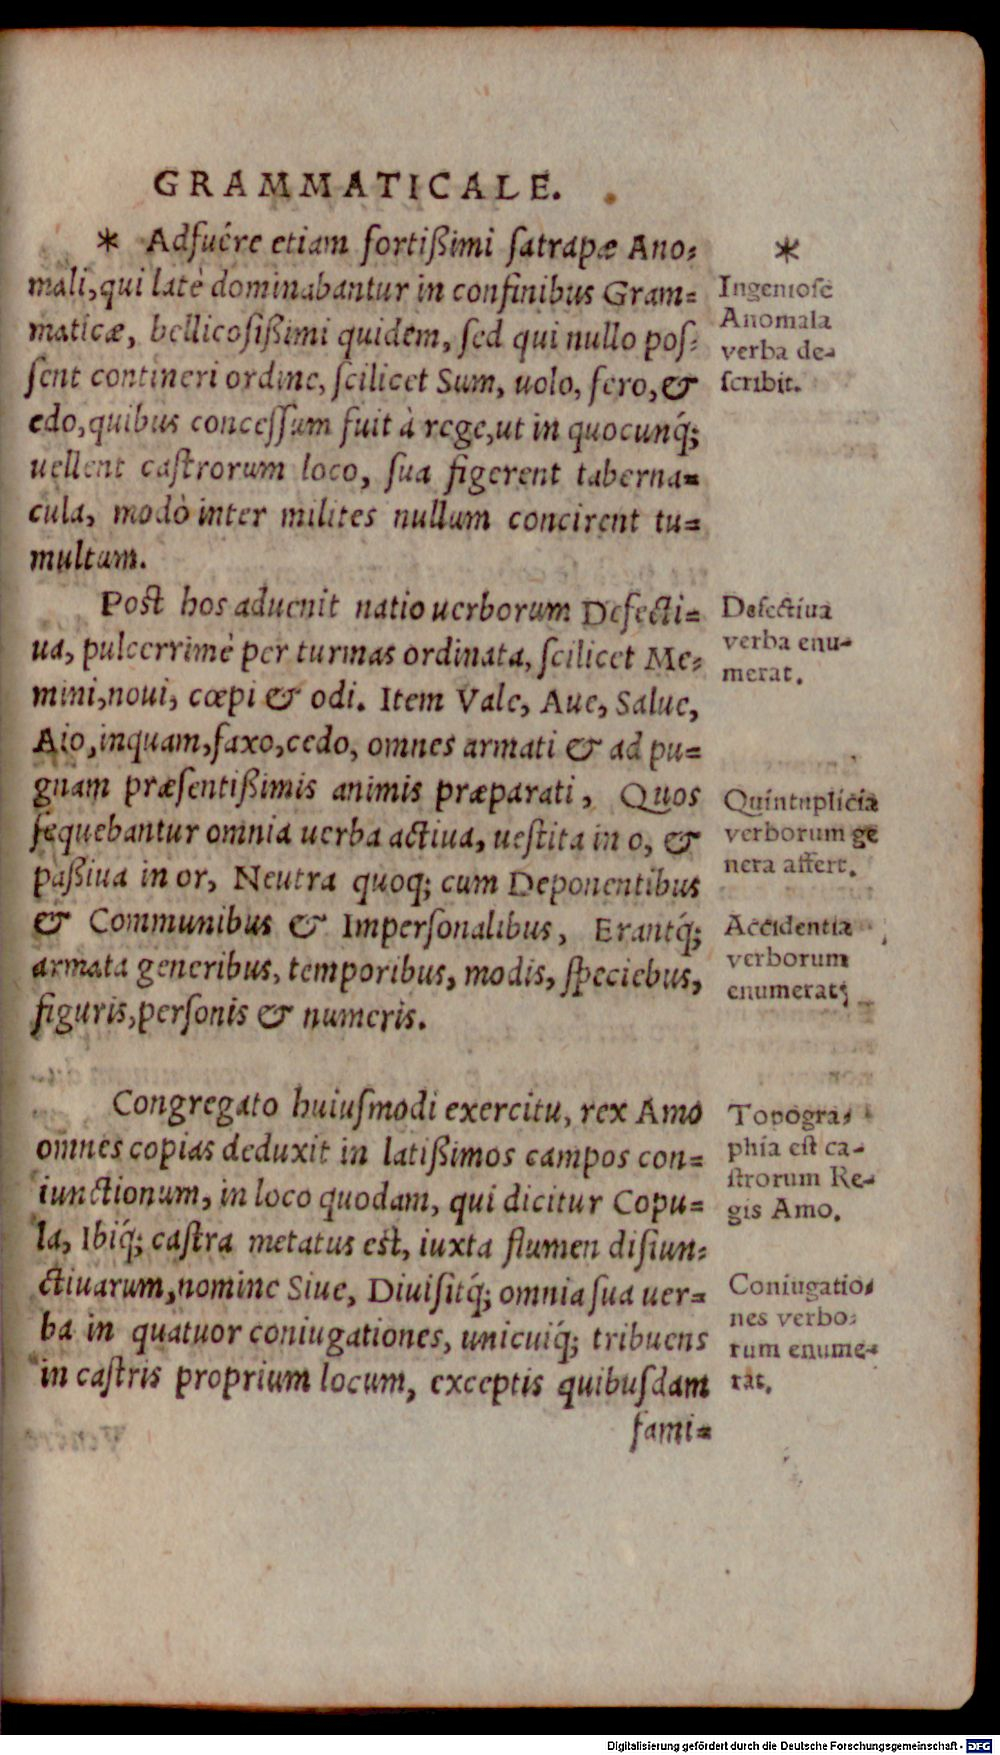 GRAMMATICALE.
* Adfuêre etiam fortißimi ſatrapæ Ano-
mali, qui latè dominabantur in confinibus Gram-
maticæ, bellicoſißimi quidem, ſed qui nullo poſ-
ſent contineri ordine, ſcilicet Sum, uolo, fero, &
edo, quibus conceſſum fuit à rege, ut in quocunq́;
uellent caſtrorum loco, ſua figerent taberna-
cula, modò inter milites nullum concirent tu-
multum.
Post hos aduenit natio uerborum Defecti-
ua, pulcerrimè per turmas ordinata, ſcilicet Me-
mini, noui, cœpi & odi. Item Vale, Aue, Salue,
Aio, inquam, faxo, cedo, omnes armati & ad pu-
gnam præſentißimis animis præparati, Quos
ſequebantur omnia uerba actiua, ueſtita in o, &
paßiua in or, Neutra quoq; cum Deponentibus
& Communibus & Imperſonalibus, Erantq́;
armata generibus, temporibus, modis, ſpeciebus,
figuris, perſonis & numeris.
Congregato huiuſmodi exercitu, rex Amo
omnes copias deduxit in latißimos campos con-
iunctionum, in loco quodam, qui dicitur Copu-
la, Ibiq́; caſtra metatus est, iuxta flumen diſiun-
ctiuarum, nomine Siue, Diuiſitq́; omnia ſua uer-
ba in quatuor coniugationes, unicuiq́; tribuens
in caſtris proprium locum, exceptis quibuſdam
fami-
*
Ingenioſè
Anomala
verba de-
ſcribit.
Defectiua
verba enu-
merat.
Quintuplicia
verborum ge
nera affert.
Accidentia
verborum
enumerat;
Topogra-
phia eſt ca-
ſtrorum Re-
gis Amo.
Coniugatio-
nes verbo-
rum enume-
rat.
Digitalisierung gefördert durch die Deutsche Forschungsgemeinschaft - DFG